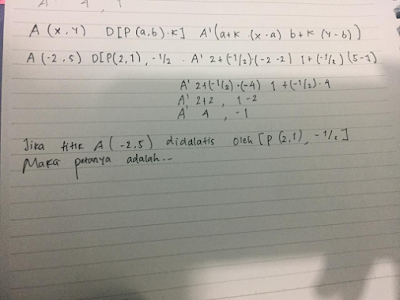 A' 4, 1
A (x, y) D[P(a,b)·K] A'(a+k (x-a) b+k (y-b))
A (-2,5) D[P(2,1), -1/2 · A' 2+(-1/2)·(-2-2) 1+(-1/2)(5-1)
A' 2+(-1/2)·(-4) 1+(-1/2)·4
A' 2+2, 1-2
A' 4, -1
Jika titik A (-2,5) didalatis oleh [P(2,1), -1/2]
Maka petanya adalah...